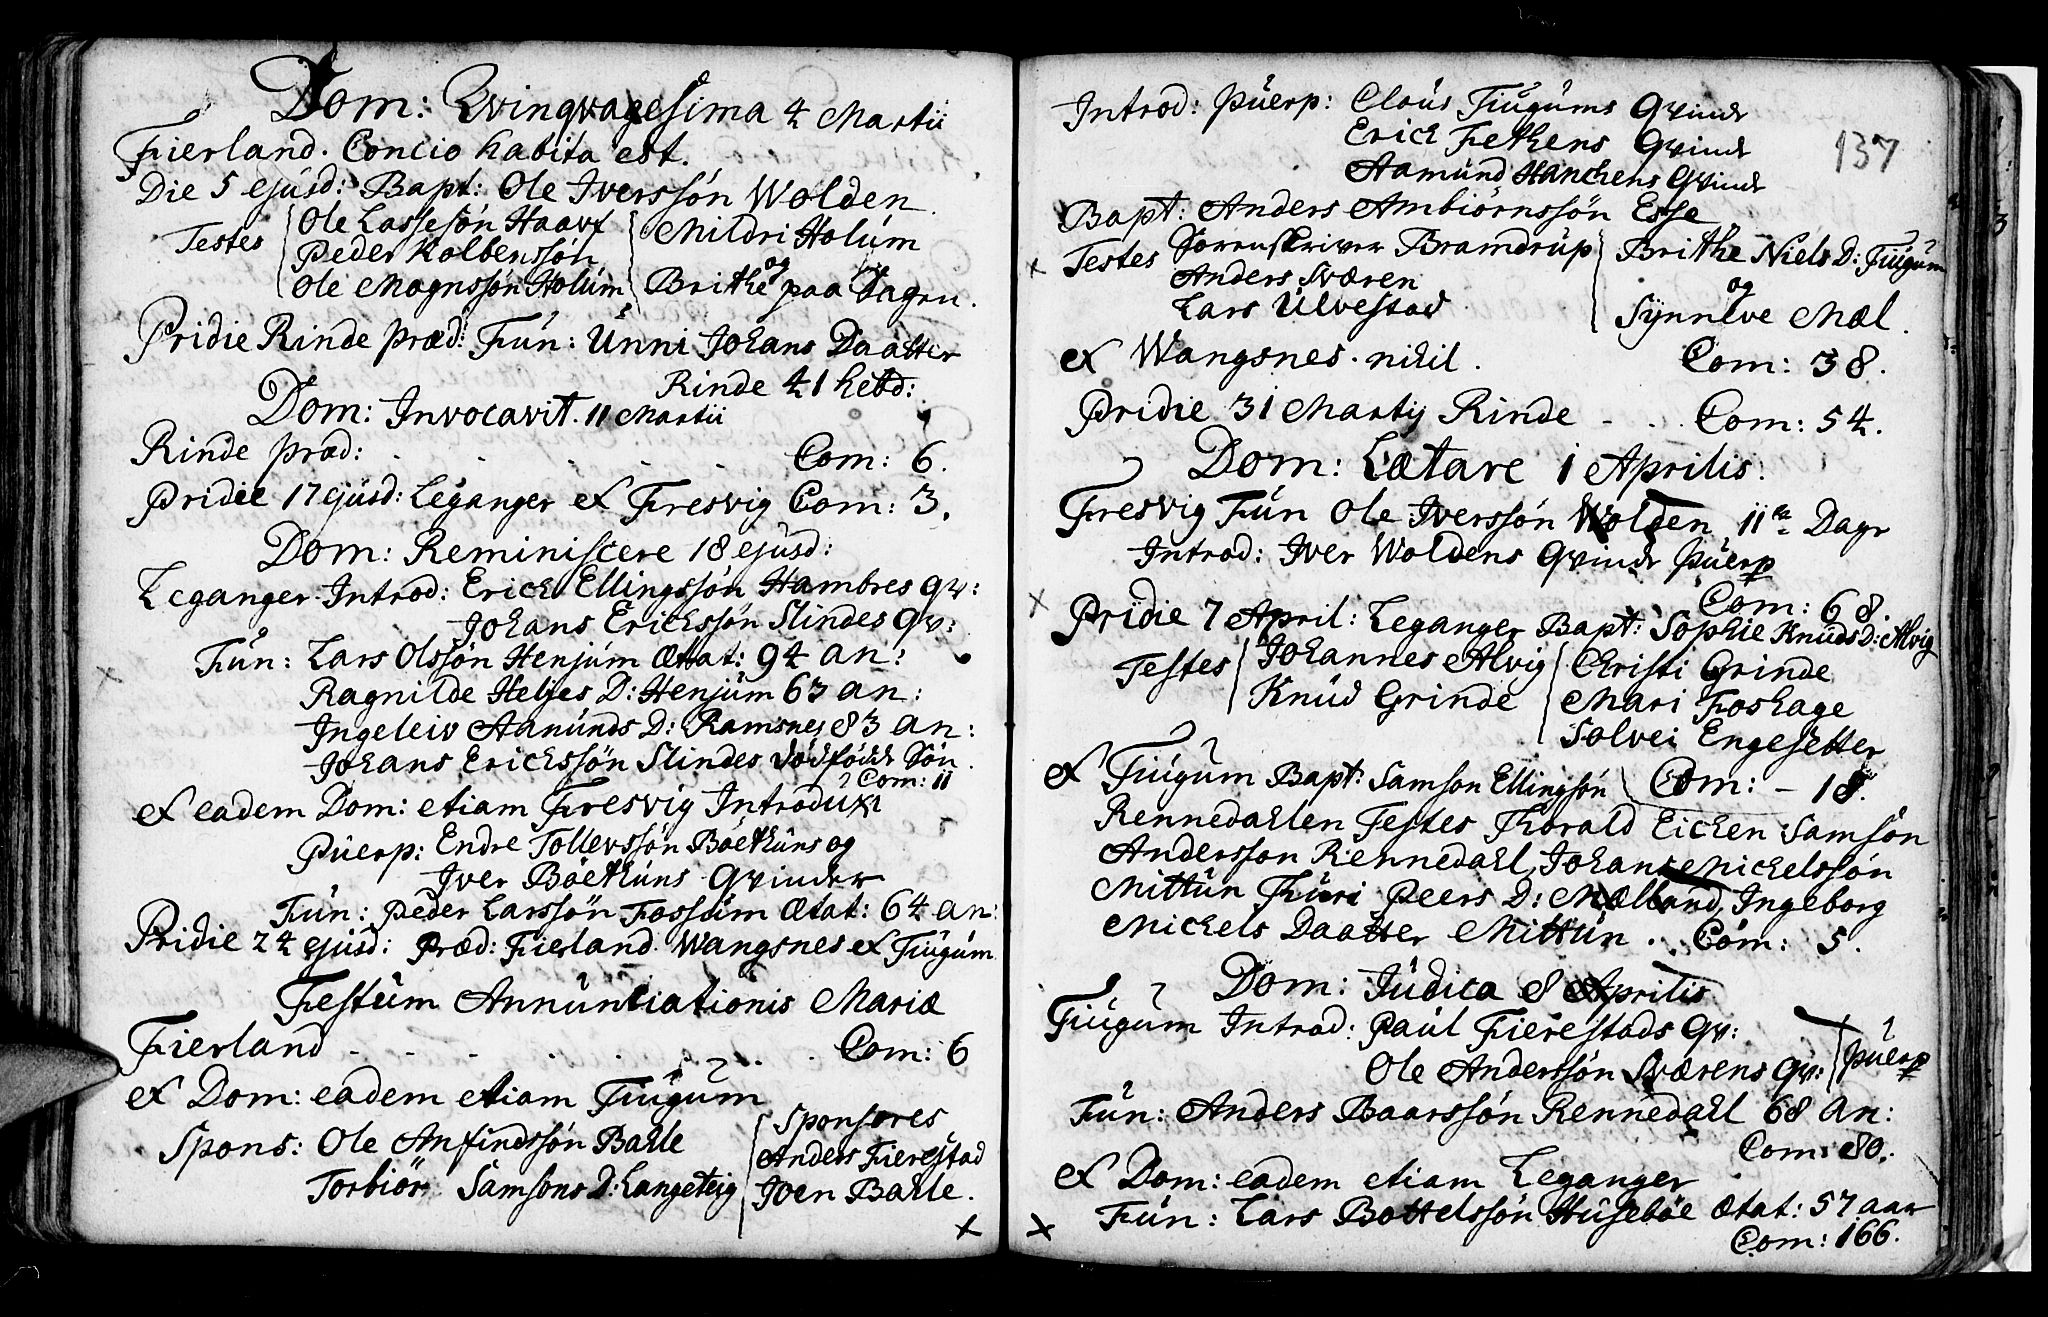 Dom: Qvinqvagesima 4 Martii
Fierland. Concio habita est.
Die 5 ejusd: Bapt: Ole Iverssøn Wolden.
Testes Ole Lassesøn Haarf Mildri Holum
Peder Kolbenssøn og
Ole Mognssøn Holum Brithe paa
Pridie Rinde præd: Fun: Unni Johans Daatter
Rinde 41 hebd:
Dom: Invocavit. 11 Martii
Rinde præd: . . . . . Com: 6.
Pridie 17 ejusd: Leganger et Fresvig Com: 3.
Dom: Reminiscere 18 ejusd:
Leganger Introd: Erich Ellingssøn Hambres qv:
Johans Erichssøn Slindes qv:
Fun: Lars Olssøn Henjum Ætat: 94 an:
Ragnilde Heljes D: Henjum 63 an:
Ingeleiv Aamunds D: Ramsnes 83 an:
Johans Erichssøn Slindes dødfødde Søn.
Com: 11
et eadem Dom: etiam Fresvig Introduxi
Puerp: Endre Tollevssøn Böethuns og
Iver Böethuns Qvinder
Fun: Peder Larssøn Fossum Ætat: 64 an:
Pridie 24 ejusd: Præd: Fierland. Wangsnes et Tiugum
Festum Annuntiationis Mariæ
Fierland . . . . . . . Com: 6
et Dom: eadem etiam Tiugum
Spons: Ole Anfindssøn Bahle Sponsores
Anders Fierestad
Torbiör Samsons D: Langeteig Iven Bahle.
137
Introd: Puerp: Claus Tiugums Qvinde
Erich Fethens Qvinde
Aamund Hanchens Qvinde
Bapt: Anders Ambiörnssøn Esse
Testes Sorenskriver Bramdrup Brithe Niels D: Tiugum
Anders Sværen og
Lars Ulvestad Synneve Mæl.
et Wangsnes. nihil. Com: 38.
Pridie 31 Martij Rinde . . . Com: 54.
Dom: Lætare 1 Aprilis.
Fresvig Fun Ole Iverssøn Wolden 11te Dage
Introd: Iver Woldens Qvinde Puerp
Com: 68.
Pridie 7 April: Leganger Bapt: Sophie Knuds D: Alvig
Testes Johannes Alvig Christi Grinde
Knud Grinde Mari Foshage
Solvei Engesetter
et Tiugum Bapt: Samson Ellingsøn Com: - 18.
Rennedahlen Testes Thorald Eichen Samsøn
Andersson Rennedahl Johans Michelssøn
Mittun Thuri Peers D: Mælland, Ingeborg
Michels Daatter Mittun. Com: 5.
Dom: Judica 8 Aprilis
Tiugum Introd: Paul Fierestads qv:
Ole Anderssøn Sværens qv: Puerp
Fun: Anders Baarssøn Rennedahl 68 an:
Com: 80.
et Dom: eadem etiam Leganger
Fun: Lars Bottelssøn Huseböe Ætat: 57 aar
Com: 166.